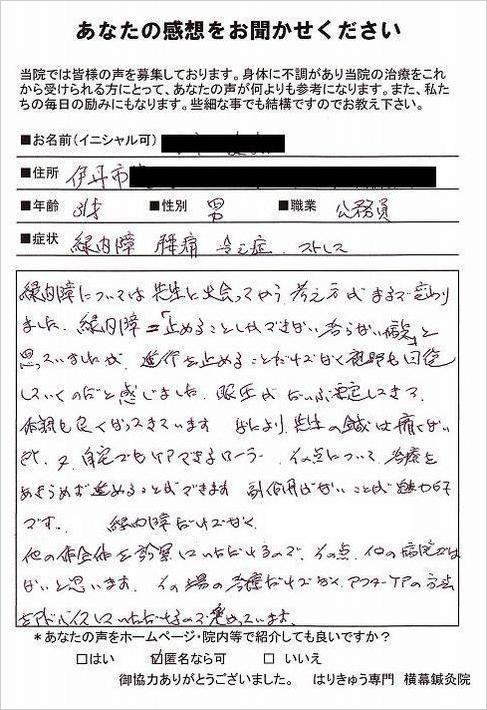 あなたの感想をお聞かせください
当院では皆様の声を募集しております。身体に不調があり当院の治療をこれ
から受けられる方にとって、あなたの声が何よりも参考になります。また、私た
ちの毎日の励みにもなります。些細な事でも結構ですのでお教え下さい。
■お名前（イニシャル可）
■住所 伊丹市
■年齢 31才 ■性別 男 ■職業 公務員
■症状 緑内障 腰痛 冷え症 ストレス
緑内障については先生に出会ってから考え方がまるで変わり
ました。緑内障＝「止めることしかできない治らない病気」と
思っていましたが、進行を止めることだけでなく視野も回復
していくのだと感じました。眼圧がだいぶ安定してきて
体調も良くなってきています なにより、先生の鍼は痛くない
又、自宅でもケアできるローラー、その点について、治療を
あきらめず進めることができます 副作用がないことが
です。 緑内障だけでなく
他の体全体を診察していただけるので、その点、他の病院では
ないと思います。その場の治療だけでなく、アフターケアの方法
をアドバイスしていただけるので
＊あなたの声をホームページ・院内等で紹介しても良いですか？
□はい ☑匿名なら可 □ いいえ
御協力ありがとうございました。 はりきゅう専門 横幕鍼灸院